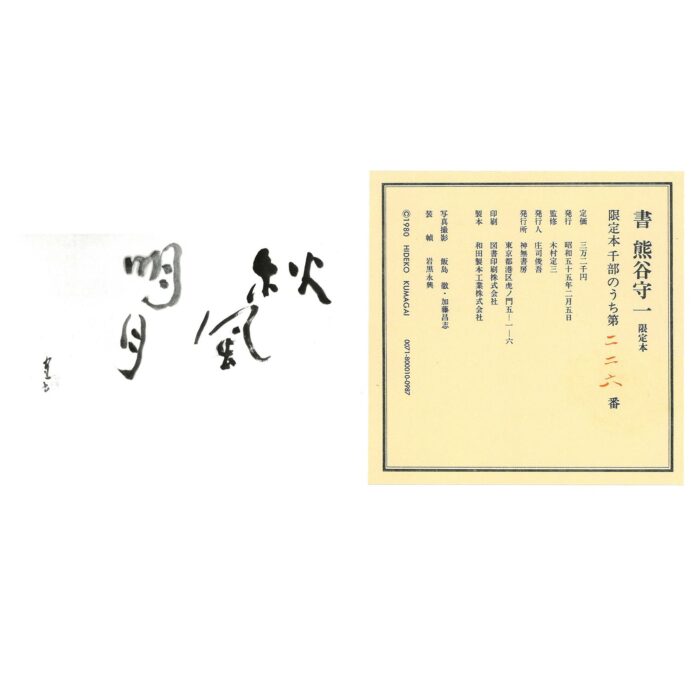 秋
風
明
月
書 熊谷守一 限定本
限定本千部のうち第 二二六 番
定価 三万二千円
発行 昭和五十五年二月五日
監修 木村定三
発行人 庄司俊吾
発行所 神無書房
東京都港区虎ノ門五-一-六
印刷 図書印刷株式会社
製本 和田製本工業株式会社
写真撮影 飯島 徹・加藤昌志
装幀 岩黒永興
©1980 HIDEKO KUMAGAI 0071-800010-0987